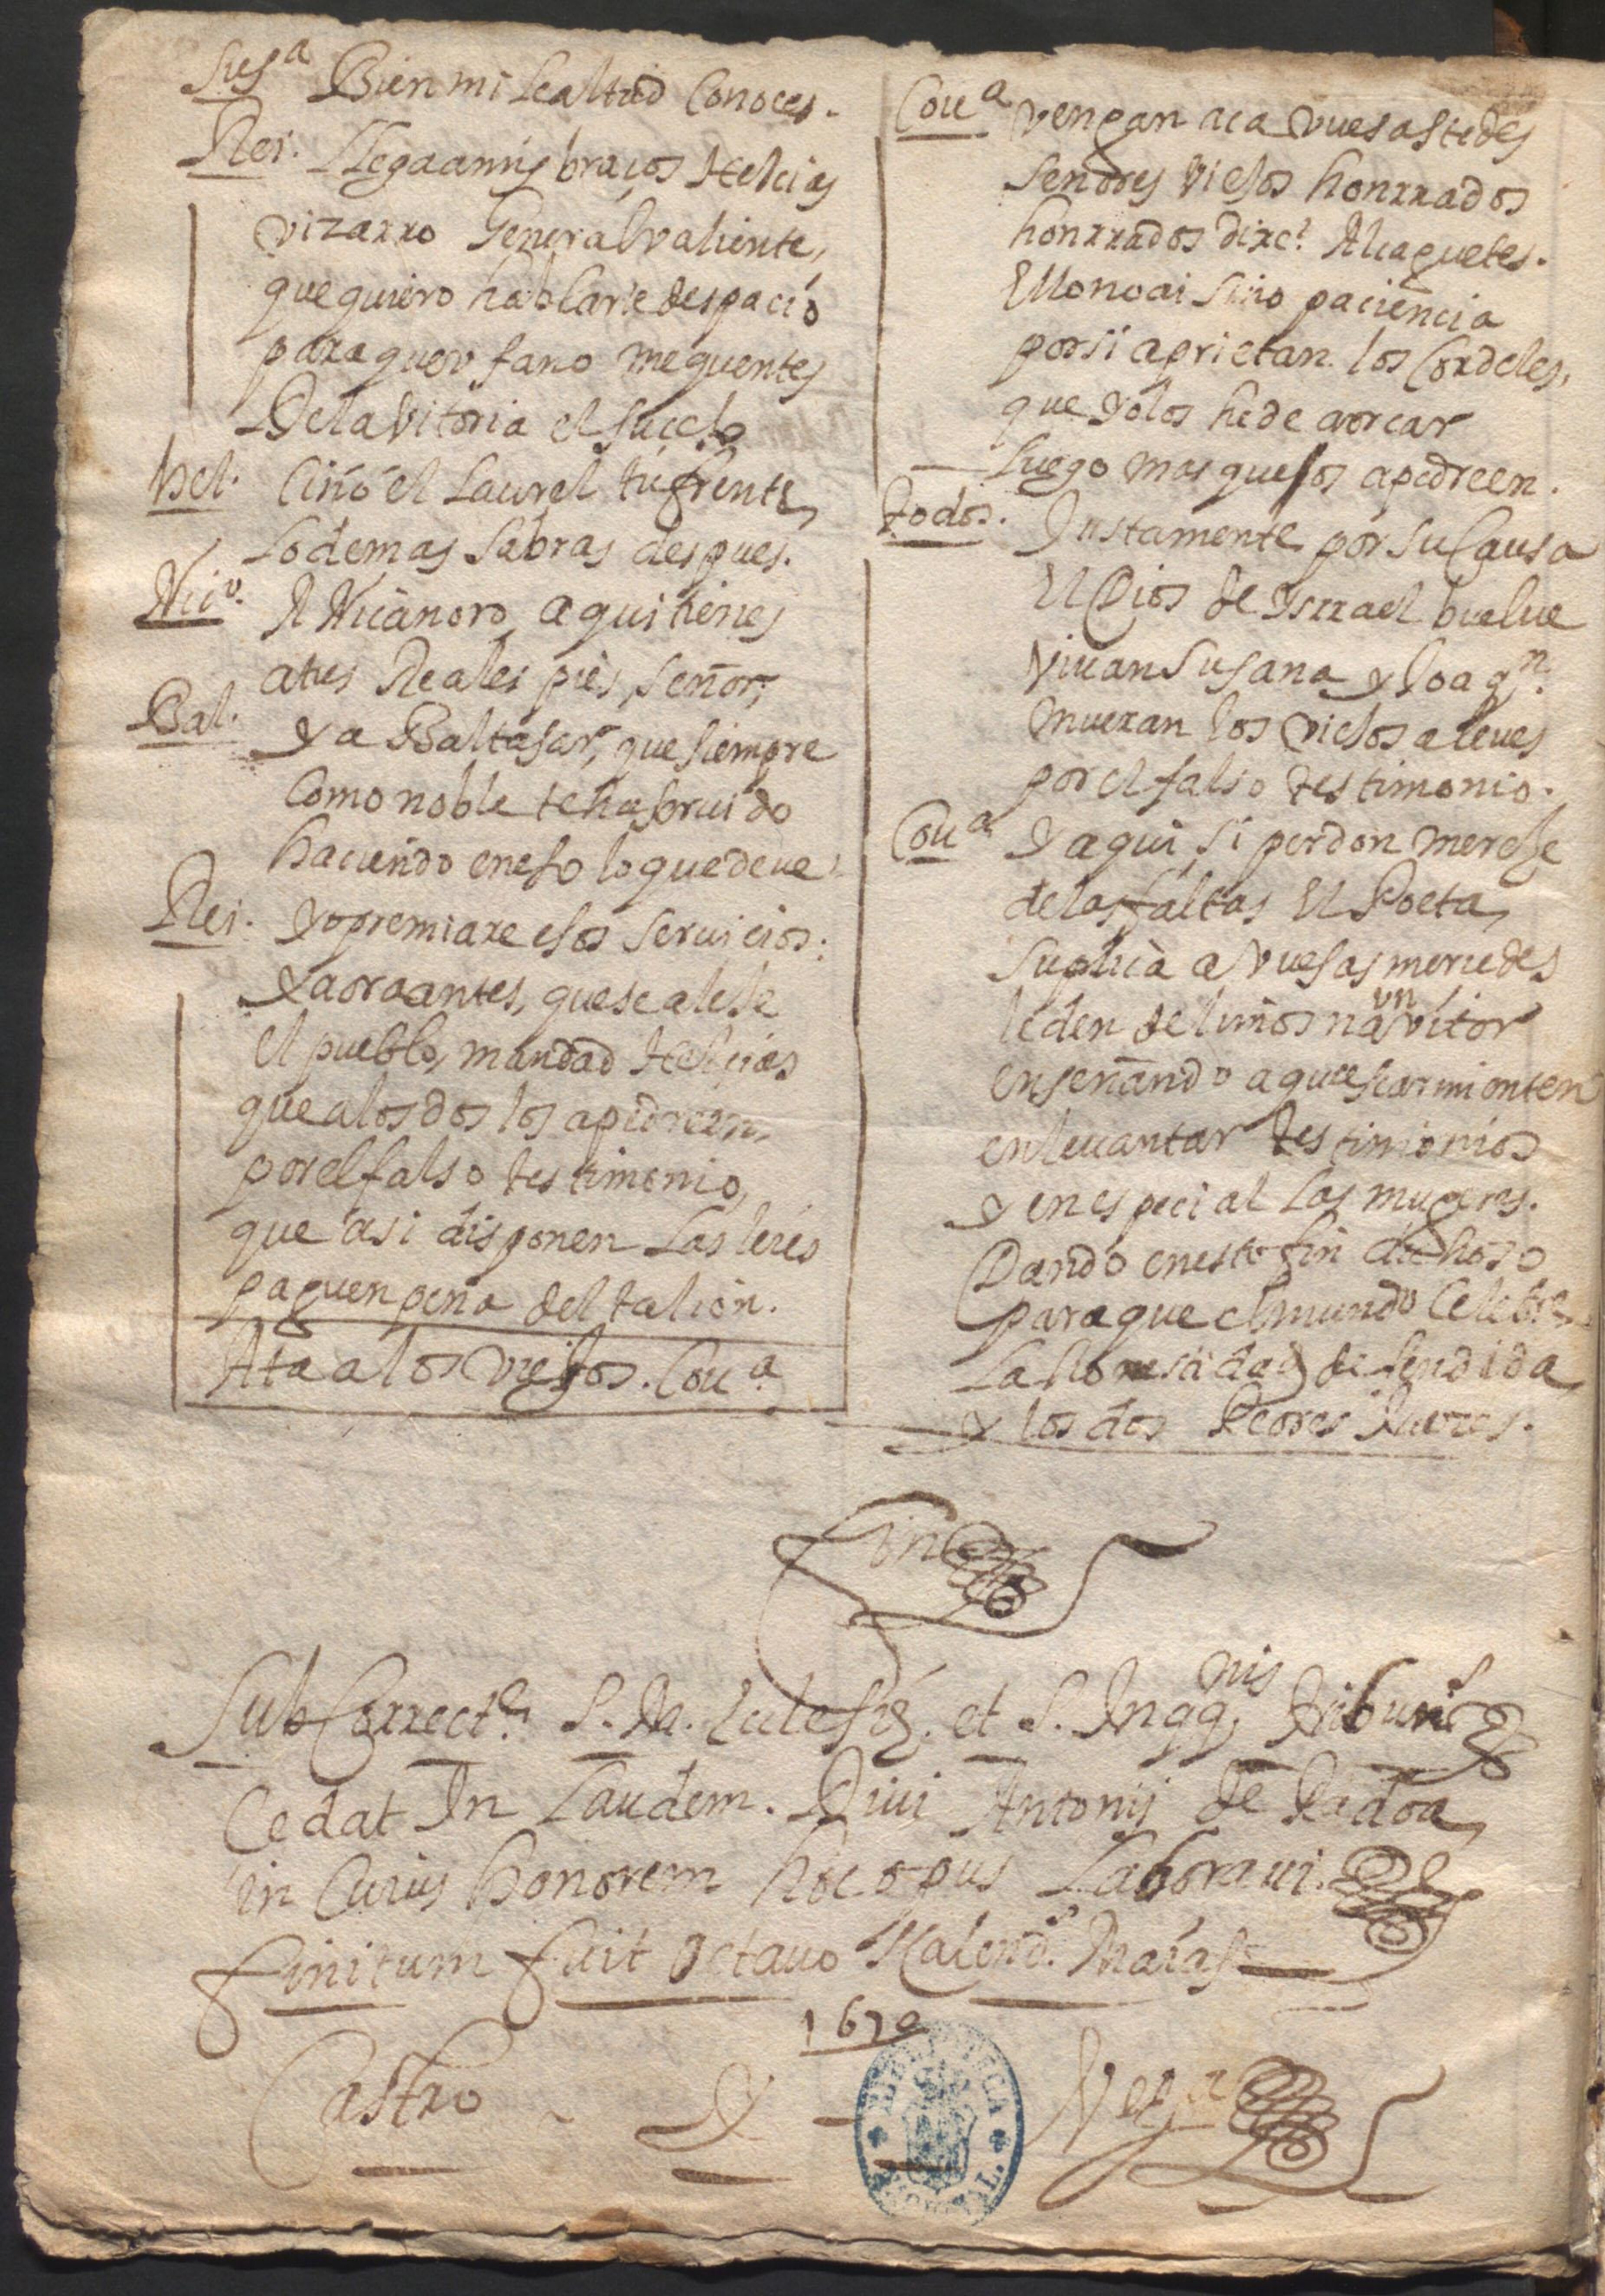 Sus.ª Bien mi Lealtad Conoces.
Rei. LLega a mis braços Helcias
vizarro General valiente,
que quiero hablarte despacio
para que vfano me quentes
De la Vitoria el suceso
hel. Ciñó el Laurel tu frente,
Lo demas Sabras despues.
Nicº. A Nicanoro, aqui tienes
a tus Reales pies, Señor,
Bal. Y a Baltasar, que siempre
Como noble te ha seruido
haciendo en eso lo que deue.
Rei. Yo premiare esos Seruicios:
Y aora antes, que se aleje
el pueblo, mandad Helcias
que a los dos los apedreen,
por el falso testimonio,
que asi disponen Las leies
paguen pena del talion.
Ata a los viejos. Couª
Couª vengan aca vuesastedes
Señores viejos honrrados
honrrados dixe? Alcaguetes.
Ello no ai sino paciencia
por si aprietan los Cordeles,
que yo los he de aorcar
Luego mas que los apedreen.
Todos. Justamente por su Causa
El Dios de Ysrrael buelue
Viuan Susana y Joaqn.
mueran los viejos aleues
por el falso testimonio.
Couª Y aqui, si perdon mereçe
de las faltas El Poeta,
Suplica a Vuesas mercedes
le den de limosna vn vitor
enseñando a que escarmienten
en leuantar testimonios
y en especial Las mugeres.
Dando en esto fin dichoso
para que el mundo Celebre
La honestidad defendida
y los dos Peores Jueces.
Fin
Sub Correct.e S. M. Eclesię. et S. Inqq.nis Tribunis
Cedat In Laudem. Diui Antonij de Padoa,
in Cuius honorem hoc opus Laboraui.
finitum fuit octauo Kalend.s Maias
1670
Castro Y Vega
BIBLIOTECA NACIONAL